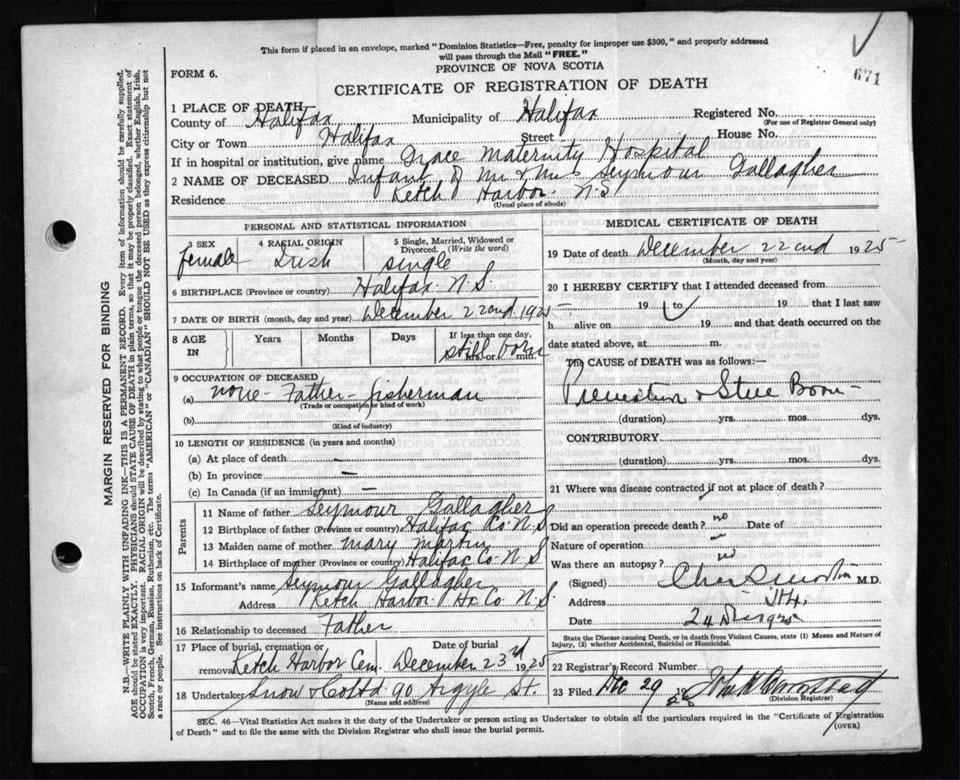 This form if placed in an envelope, marked "Dominion Statistics—Free, penalty for improper use $300," and properly addressed
will pass through the Mail "FREE."
671
FORM 6.
PROVINCE OF NOVA SCOTIA
CERTIFICATE OF REGISTRATION OF DEATH
1 PLACE OF DEATH
County of Halifax Municipality of Halifax Registered No.
(For use of Registrar General only)
City or Town Halifax Street House No.
If in hospital or institution, give name Grace Maternity Hospital
2 NAME OF DECEASED Infant of Mr & Mrs Seymour Gallagher
Residence Ketch Harbor N.S
(Usual place of abode)
PERSONAL AND STATISTICAL INFORMATION
3 SEX 4 RACIAL ORIGIN 5 Single, Married, Widowed or
Divorced. (Write the word)
female Irish single
6 BIRTHPLACE (Province or country) Halifax N.S.
7 DATE OF BIRTH (month, day and year) December 22nd 1925
8 AGE IN Years Months Days If less than one day,
still born
hrs. or min.
9 OCCUPATION OF DECEASED
(a) none - Father - fisherman
(Trade or occupation or kind of work)
(b)
(Kind of industry)
10 LENGTH OF RESIDENCE (in years and months)
(a) At place of death —
(b) In province —
(c) In Canada (if an immigrant) —
Parents
11 Name of father Seymour Gallagher
12 Birthplace of father (Province or country) Halifax Co. N.S
13 Maiden name of mother Mary Martin
14 Birthplace of mother (Province or country) Halifax Co. N.S
15 Informant's name Seymour Gallagher
Address Ketch Harbor Hx Co. N.S.
16 Relationship to deceased Father
17 Place of burial, cremation or Date of burial
removal Ketch Harbor Cem. December 23rd 1925
18 Undertaker Snow & Co Ltd 90 Argyle St.
(Name and address)
MEDICAL CERTIFICATE OF DEATH
19 Date of death December 22nd 1925
(Month, day and year)
20 I HEREBY CERTIFY that I attended deceased from
19 to 19 that I last saw
h alive on 19 and that death occurred on the
date stated above, at m.
The CAUSE OF DEATH was as follows:—
Premature & Still Born
(duration) yrs. mos. dys.
CONTRIBUTORY
(duration) yrs. mos. dys.
21 Where was disease contracted if not at place of death?
Did an operation precede death? no Date of
Nature of operation —
Was there an autopsy? no
(Signed) M.D.
Address Hx.
Date 24 Dec 1925
State the Disease causing Death, or in death from Violent Causes, state (1) Means and Nature of
Injury, (2) whether Accidental, Suicidal or Homicidal.
22 Registrar's Record Number
23 Filed Dec 29 1925
(Division Registrar)
SEC. 46—Vital Statistics Act makes it the duty of the Undertaker or person acting as Undertaker to obtain all the particulars required in the "Certificate of Registration
of Death" and to file the same with the Division Registrar who shall issue the burial permit.
(OVER)
MARGIN RESERVED FOR BINDING
N.B.—WRITE PLAINLY WITH UNFADING INK—THIS IS A PERMANENT RECORD. Every item of information should be carefully supplied.
AGE should be stated EXACTLY. PHYSICIANS should STATE CAUSE OF DEATH in plain terms, so that it may be properly classified. Exact statement of
OCCUPATION is very important. RACIAL ORIGIN will be described by stating to what people or tongue the deceased person belonged, whether English, Irish,
Scotch, French, German, Russian, Ruthenian, etc. The terms "AMERICAN" or "CANADIAN" SHOULD NOT BE USED as they express citizenship but not
a race or people. See instructions on back of Certificate.